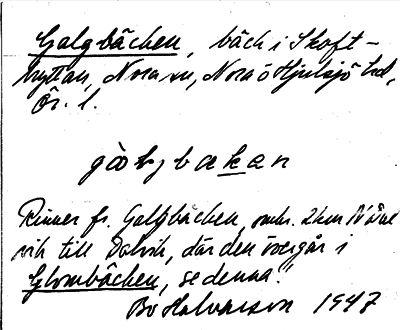 Galgbäcken, bäck i Skoft-
hyttan, Nora sn, Nora o Hjulsjö hd,
Ör. l.
Rinner fr. Galgbäcken, omkr. 2 km N Dal
vik till Dalvik, där den övergår i
Glombäcken, se denna."
Bo Halvarson 1947